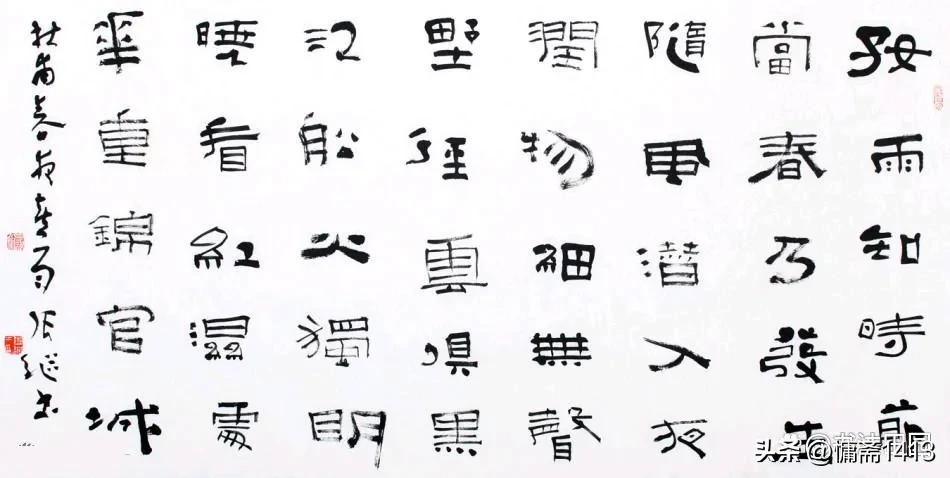 好雨知時節
當春乃發生
隨風潛入夜
潤物細無聲
野徑雲俱黑
江船火獨明
曉看紅濕處
華重錦官城
杜甫春夜喜雨 张继书
头条 @慵斋1413